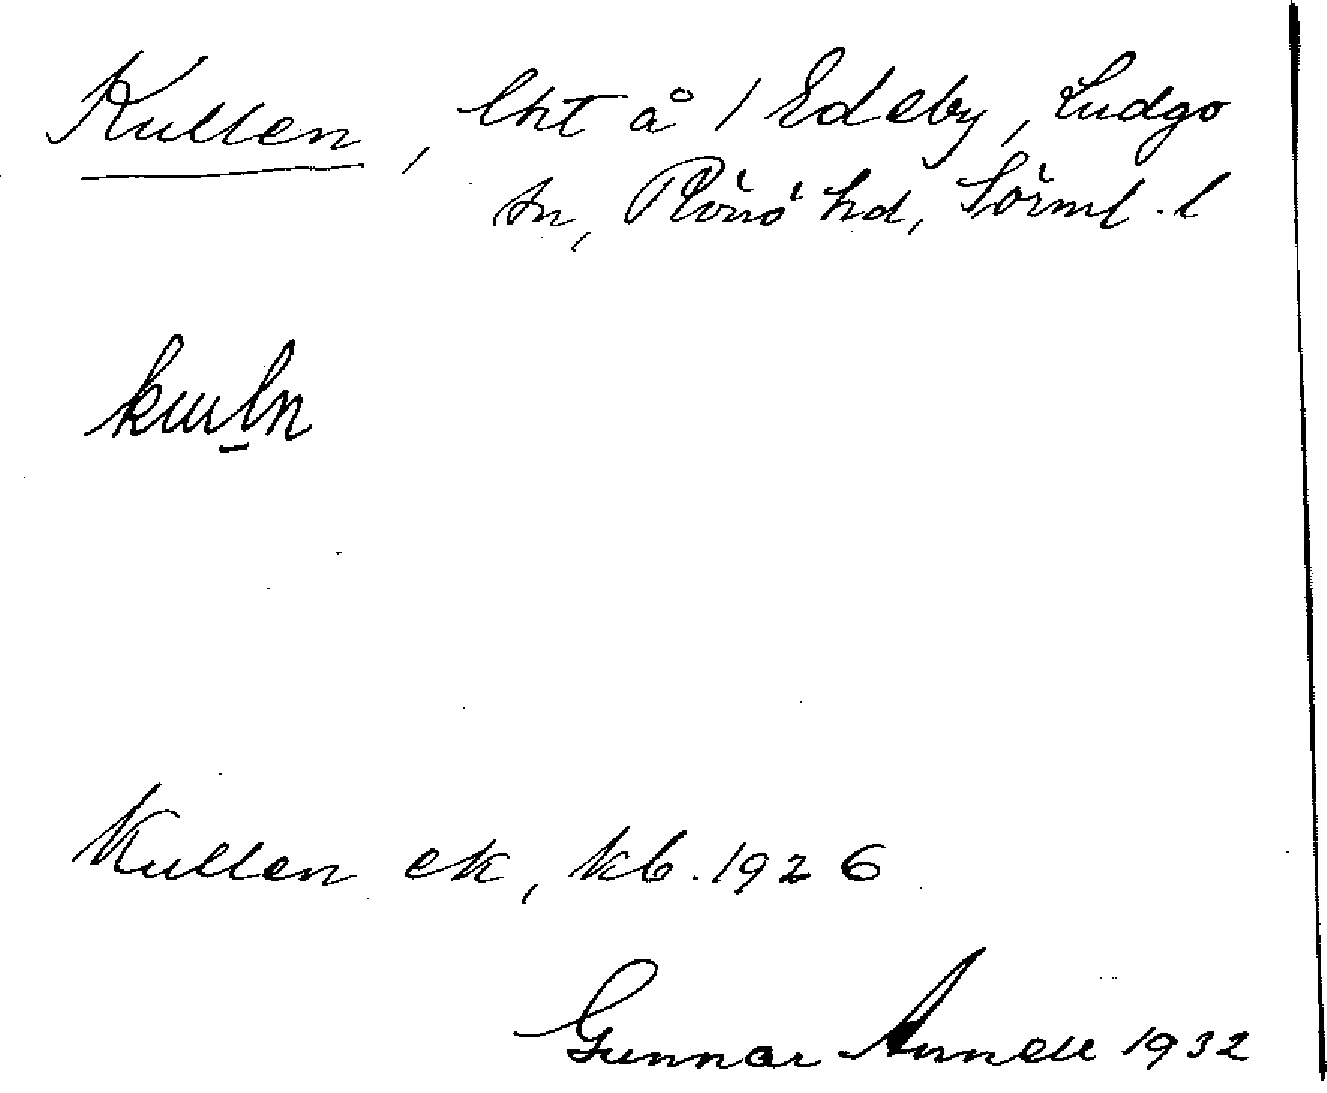 Kullen, lht å / Edeby, Ludgo
sn, Rönö hd, Sörml. l
Kullen ek, kb. 1926
Gunnar Annell 1932